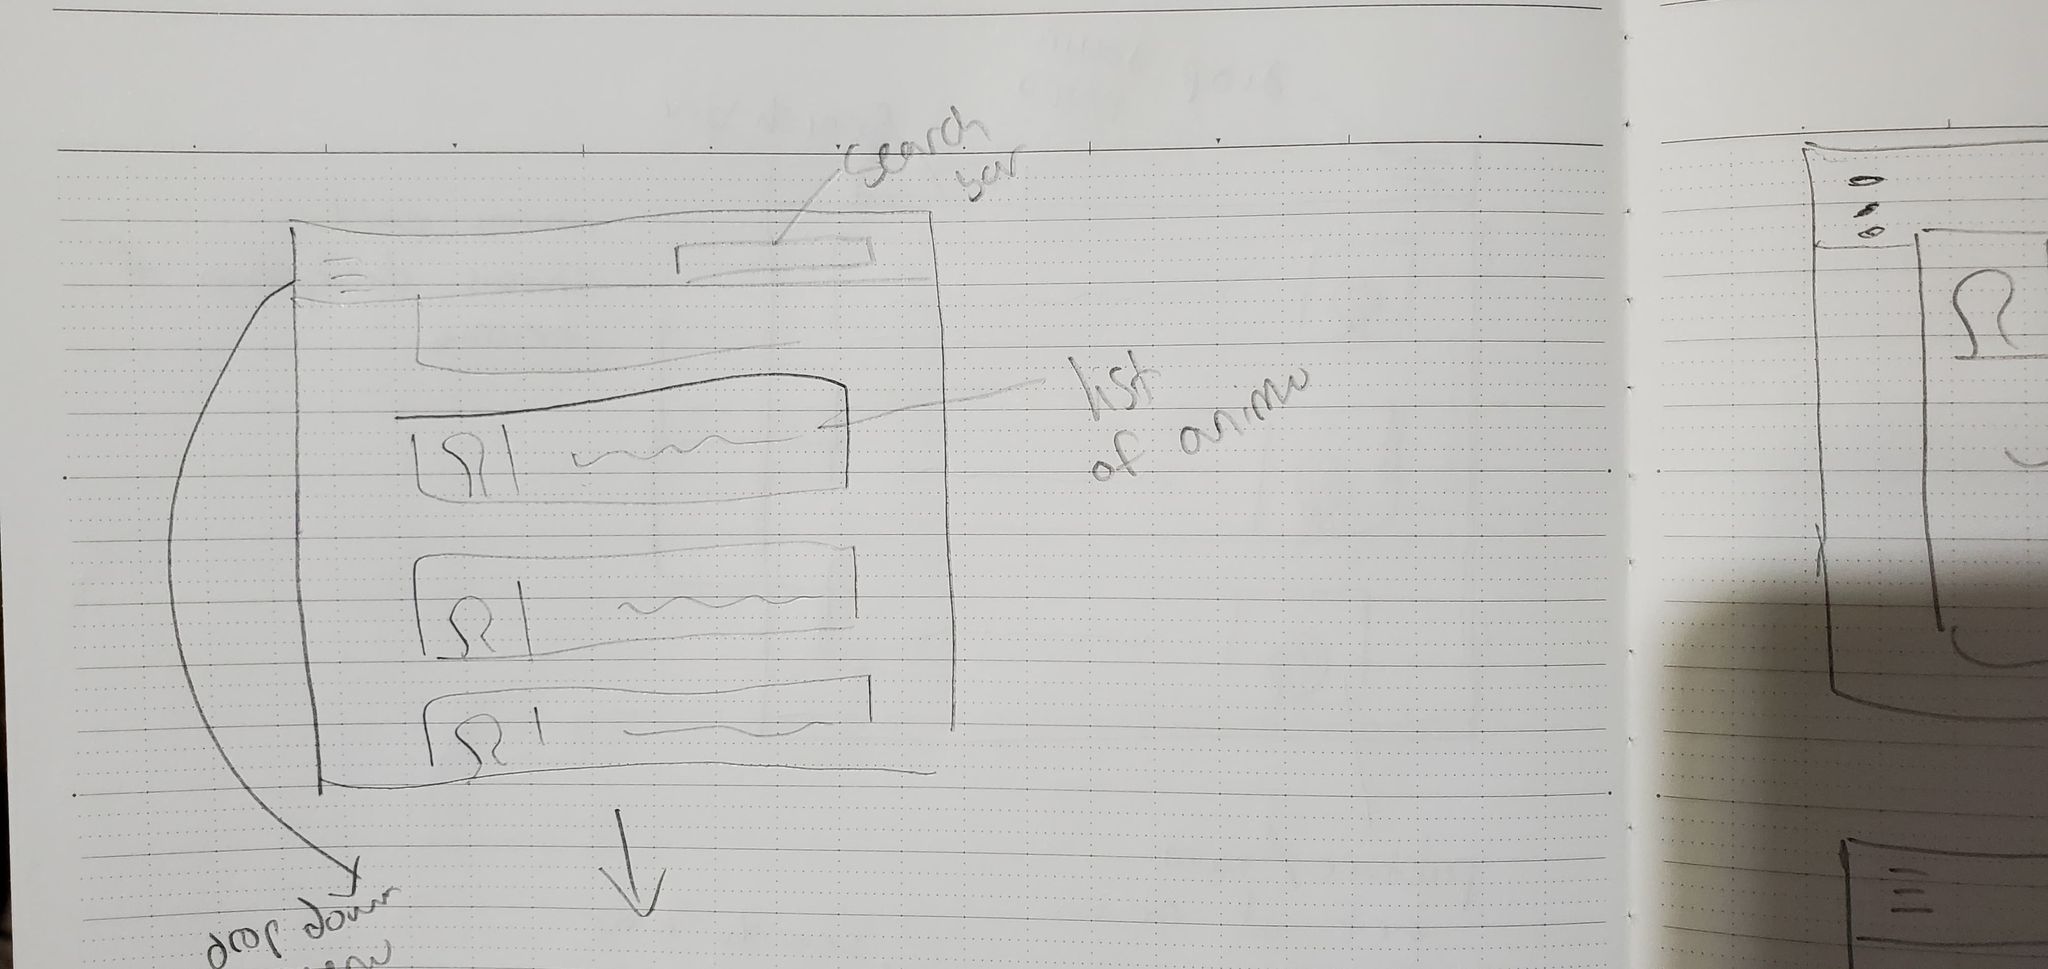 search
bar
list
of anime
drop down
menu